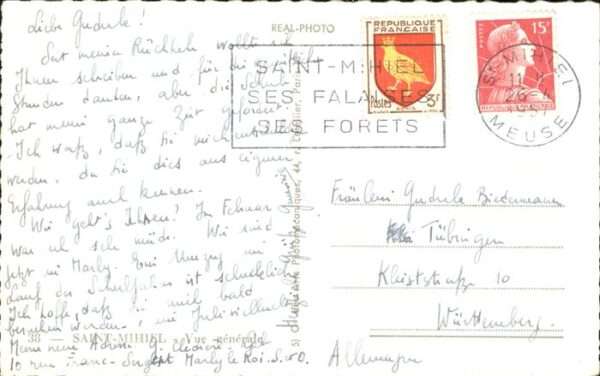 Liebe Gudrule!
Seit meiner Rückkehr wollte ich
Ihnen schreiben und für die
danken, aber die Schule
hat meine ganze Zeit gefordert.
Ich weiß, daß Sie mich
werden, da Sie dies aus eigener
Erfahrung auch kennen.
Wie geht's Ihnen? Im Februar
war ich sehr müde. Wir sind
jetzt in Marly. Ein Umzug im
Lauf des Schuljahres ist schrecklich.
Ich hoffe, daß Sie mich bald
besuchen werden, im Juli vielleicht
Meine neue Adresse
10 rue Franc- Marly le Roi. S. & O.
38 — SAINT-MIHIEL — Vue générale
REAL-PHOTO
REPUBLIQUE
FRANÇAISE
POSTES
3F
15F
POSTES
SAINT-MIHIEL
SES FALAISES
SES FORETS
ST-MIHIEL
11 H
26 - 4
1957
MEUSE
Fräulein Gudrule Biedermann
Tübingen
Kleiststraße 10
Württemberg.
Allemagne